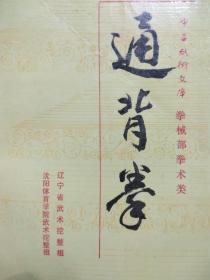 中国武术文库
拳械部拳术类
通背拳
辽宁省武术挖整组
沈阳体育学院武术挖整组